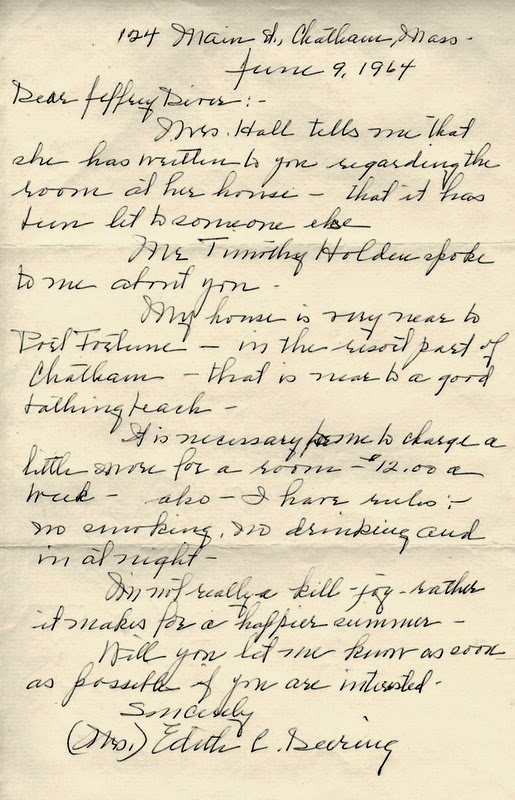 124 Main St., Chatham, Mass.
June 9, 1964
Dear Jeffrey :-
Mrs. Hall tells me that
she has written to you regarding the
room at her house - that it has
been let to someone else
Mr Timothy Holden spoke
to me about you -
My house is very near to
Port Fortune - in the resort part of
Chatham - that is near to a good
bathing beach -
It is necessary for me to charge a
little more for a room - $12.00 a
week - also - I have rules :-
no smoking, no drinking and
in at night -
I'm not really a kill-joy - rather
it makes for a happier summer -
Will you let me know as soon
as possible if you are interested -
Sincerely
(Mrs.) Edith C. Deering